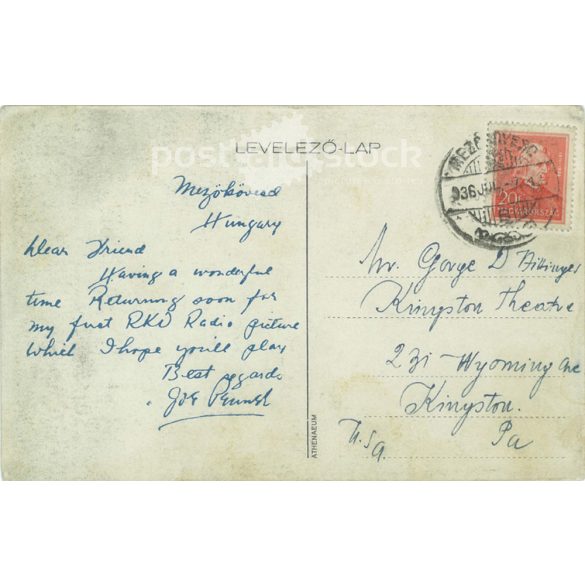 postcardstock
LEVELEZŐ-LAP
Mezőkövesd
Hungary
Dear Friend
Having a wonderful
time Returning soon for
my first RKO Radio picture
Which I hope you'll play
Best regards
Joe
MEZŐ
936
20f
MAGYARORSZÁG
Mr. George D
Kingston Theatre
231 Wyoming Ave
Kingston.
Pa
U.S.A.
ATHENAEUM